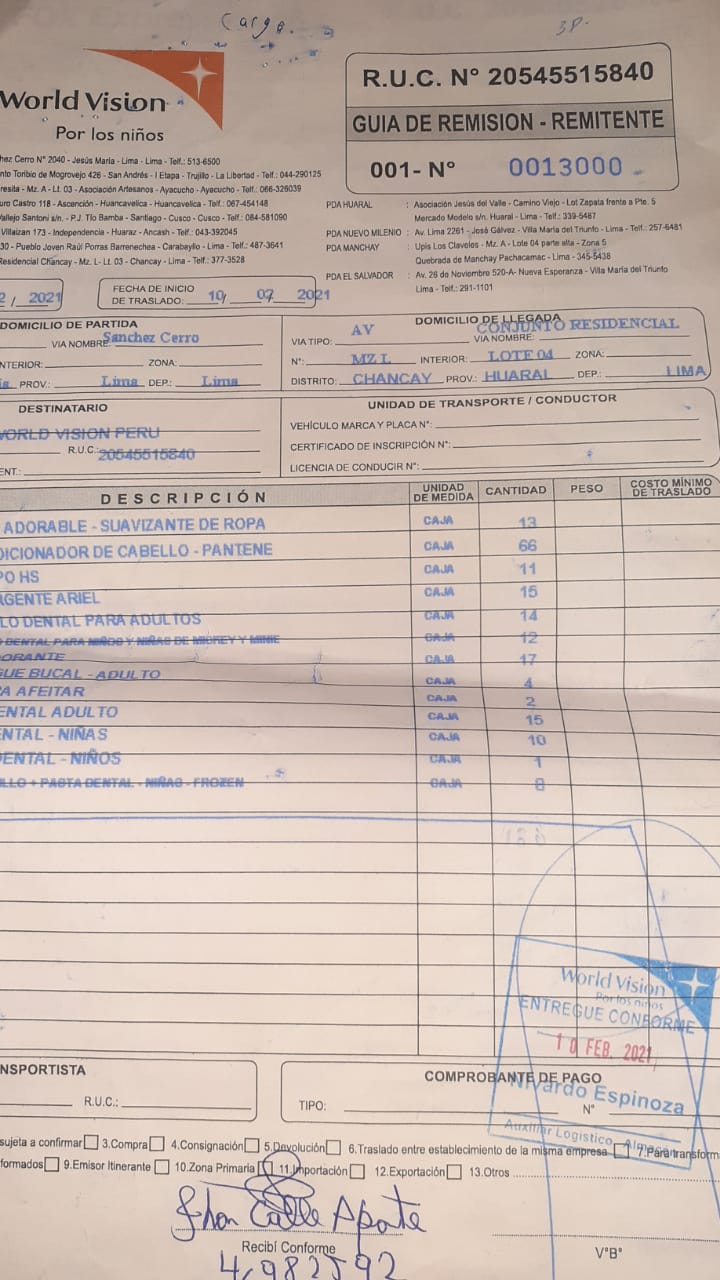 Cargo.
World Vision
Por los niños
R.U.C. N° 20545515840
GUIA DE REMISION - REMITENTE
001- N° 0013000
hez Cerro N° 2040 - Jesús María - Lima - Lima - Telf.: 513-6500
nto Toribio de Mogrovejo 426 - San Andrés - I Etapa - Trujillo - La Libertad - Telf.: 044-290125
resita - Mz. A - Lt. 03 - Asociación Artesanos - Ayacucho - Ayacucho - Telf.: 066-326039
uro Castro 118 - Ascención - Huancavelica - Huancavelica - Telf.: 067-454148
Vallejo Santoni s/n. - P.J. Tío Bamba - Santiago - Cusco - Cusco - Telf.: 084-581090
Villaizan 173 - Independencia - Huaraz - Ancash - Telf.: 043-392045
30 - Pueblo Joven Raúl Porras Barrenechea - Carabayllo - Lima - Telf.: 487-3641
Residencial Chancay - Mz. L- Lt. 03 - Chancay - Lima - Telf.: 377-3528
PDA HUARAL : Asociación Jesús del Valle - Camino Viejo - Lot Zapata frente a Pte. 5
Mercado Modelo s/n. Huaral - Lima - Telf.: 339-5487
PDA NUEVO MILENIO : Av. Lima 2261 - José Gálvez - Villa María del Triunfo - Lima - Telf.: 257-6481
PDA MANCHAY : Upis Los Claveles - Mz. A - Lote 04 parte alta - Zona 5
Quebrada de Manchay Pachacamac - Lima - 345-5438
PDA EL SALVADOR : Av. 26 de Noviembre 520-A- Nueva Esperanza - Villa María del Triunfo
Lima - Telf.: 291-1101
2/ 2021
FECHA DE INICIO
DE TRASLADO: 10 02 2021
DOMICILIO DE PARTIDA
VIA NOMBRE: Sanchez Cerro
NTERIOR: ZONA:
PROV.: Lima DEP.: Lima
DOMICILIO DE LLEGADA
VIA TIPO: AV VIA NOMBRE: CONJUNTO RESIDENCIAL
N°: MZ L INTERIOR: LOTE 04 ZONA:
DISTRITO: CHANCAY PROV.: HUARAL DEP.: LIMA
DESTINATARIO
WORLD VISION PERU
R.U.C.: 20545515840
ENT.:
UNIDAD DE TRANSPORTE / CONDUCTOR
VEHÍCULO MARCA Y PLACA N°:
CERTIFICADO DE INSCRIPCIÓN N°:
LICENCIA DE CONDUCIR N°:
DESCRIPCIÓN UNIDAD DE MEDIDA CANTIDAD PESO COSTO MÍNIMO DE TRASLADO
ADORABLE - SUAVIZANTE DE ROPA CAJA 13
DICIONADOR DE CABELLO - PANTENE CAJA 66
PO HS CAJA 11
AGENTE ARIEL CAJA 15
LO DENTAL PARA ADULTOS CAJA 14
DENTAL PARA NIÑOS Y NIÑAS DE MICKEY Y MINIE CAJA 12
ORANTE CAJA 17
GUE BUCAL - ADULTO CAJA 4
A AFEITAR CAJA 2
ENTAL ADULTO CAJA 15
NTAL - NIÑAS CAJA 10
DENTAL - NIÑOS CAJA 1
LLO + PASTA DENTAL - NIÑAS - FROZEN CAJA 8
World Vision
Por los niños
ENTREGUE CONFORME
10 FEB. 2021
Nivardo Espinoza
Auxiliar Logistico
NSPORTISTA
R.U.C.:
COMPROBANTE DE PAGO
TIPO: N°
sujeta a confirmar 3.Compra 4.Consignación 5.Devolución 6.Traslado entre establecimiento de la misma empresa 7.Para transform
formados 9.Emisor Itinerante 10.Zona Primaria 11.Importación 12.Exportación 13.Otros
Jhon Calle Aponte
Recibí Conforme
V°B°